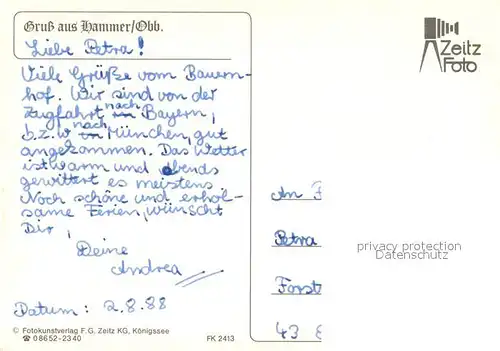 Gruß aus Hammer/Obb.
Liebe Petra!
Viele Grüße vom Bauern-
hof. Wir sind von der
Zugfahrt nach Bayern,
b.z.w nach München, gut
angekommen. Das Wetter
ist warm und abends
gewittert es meistens
Noch schöne und erhol-
same Ferien, wünscht
Dir,
Deine
Andrea
Datum: 2.8.88
© Fotokunstverlag F. G. Zeitz KG, Königssee
☎ 08652-2340
FK 2413
Zeitz
Foto
An F
Petra
privacy protection
Datenschutz
Forst
43